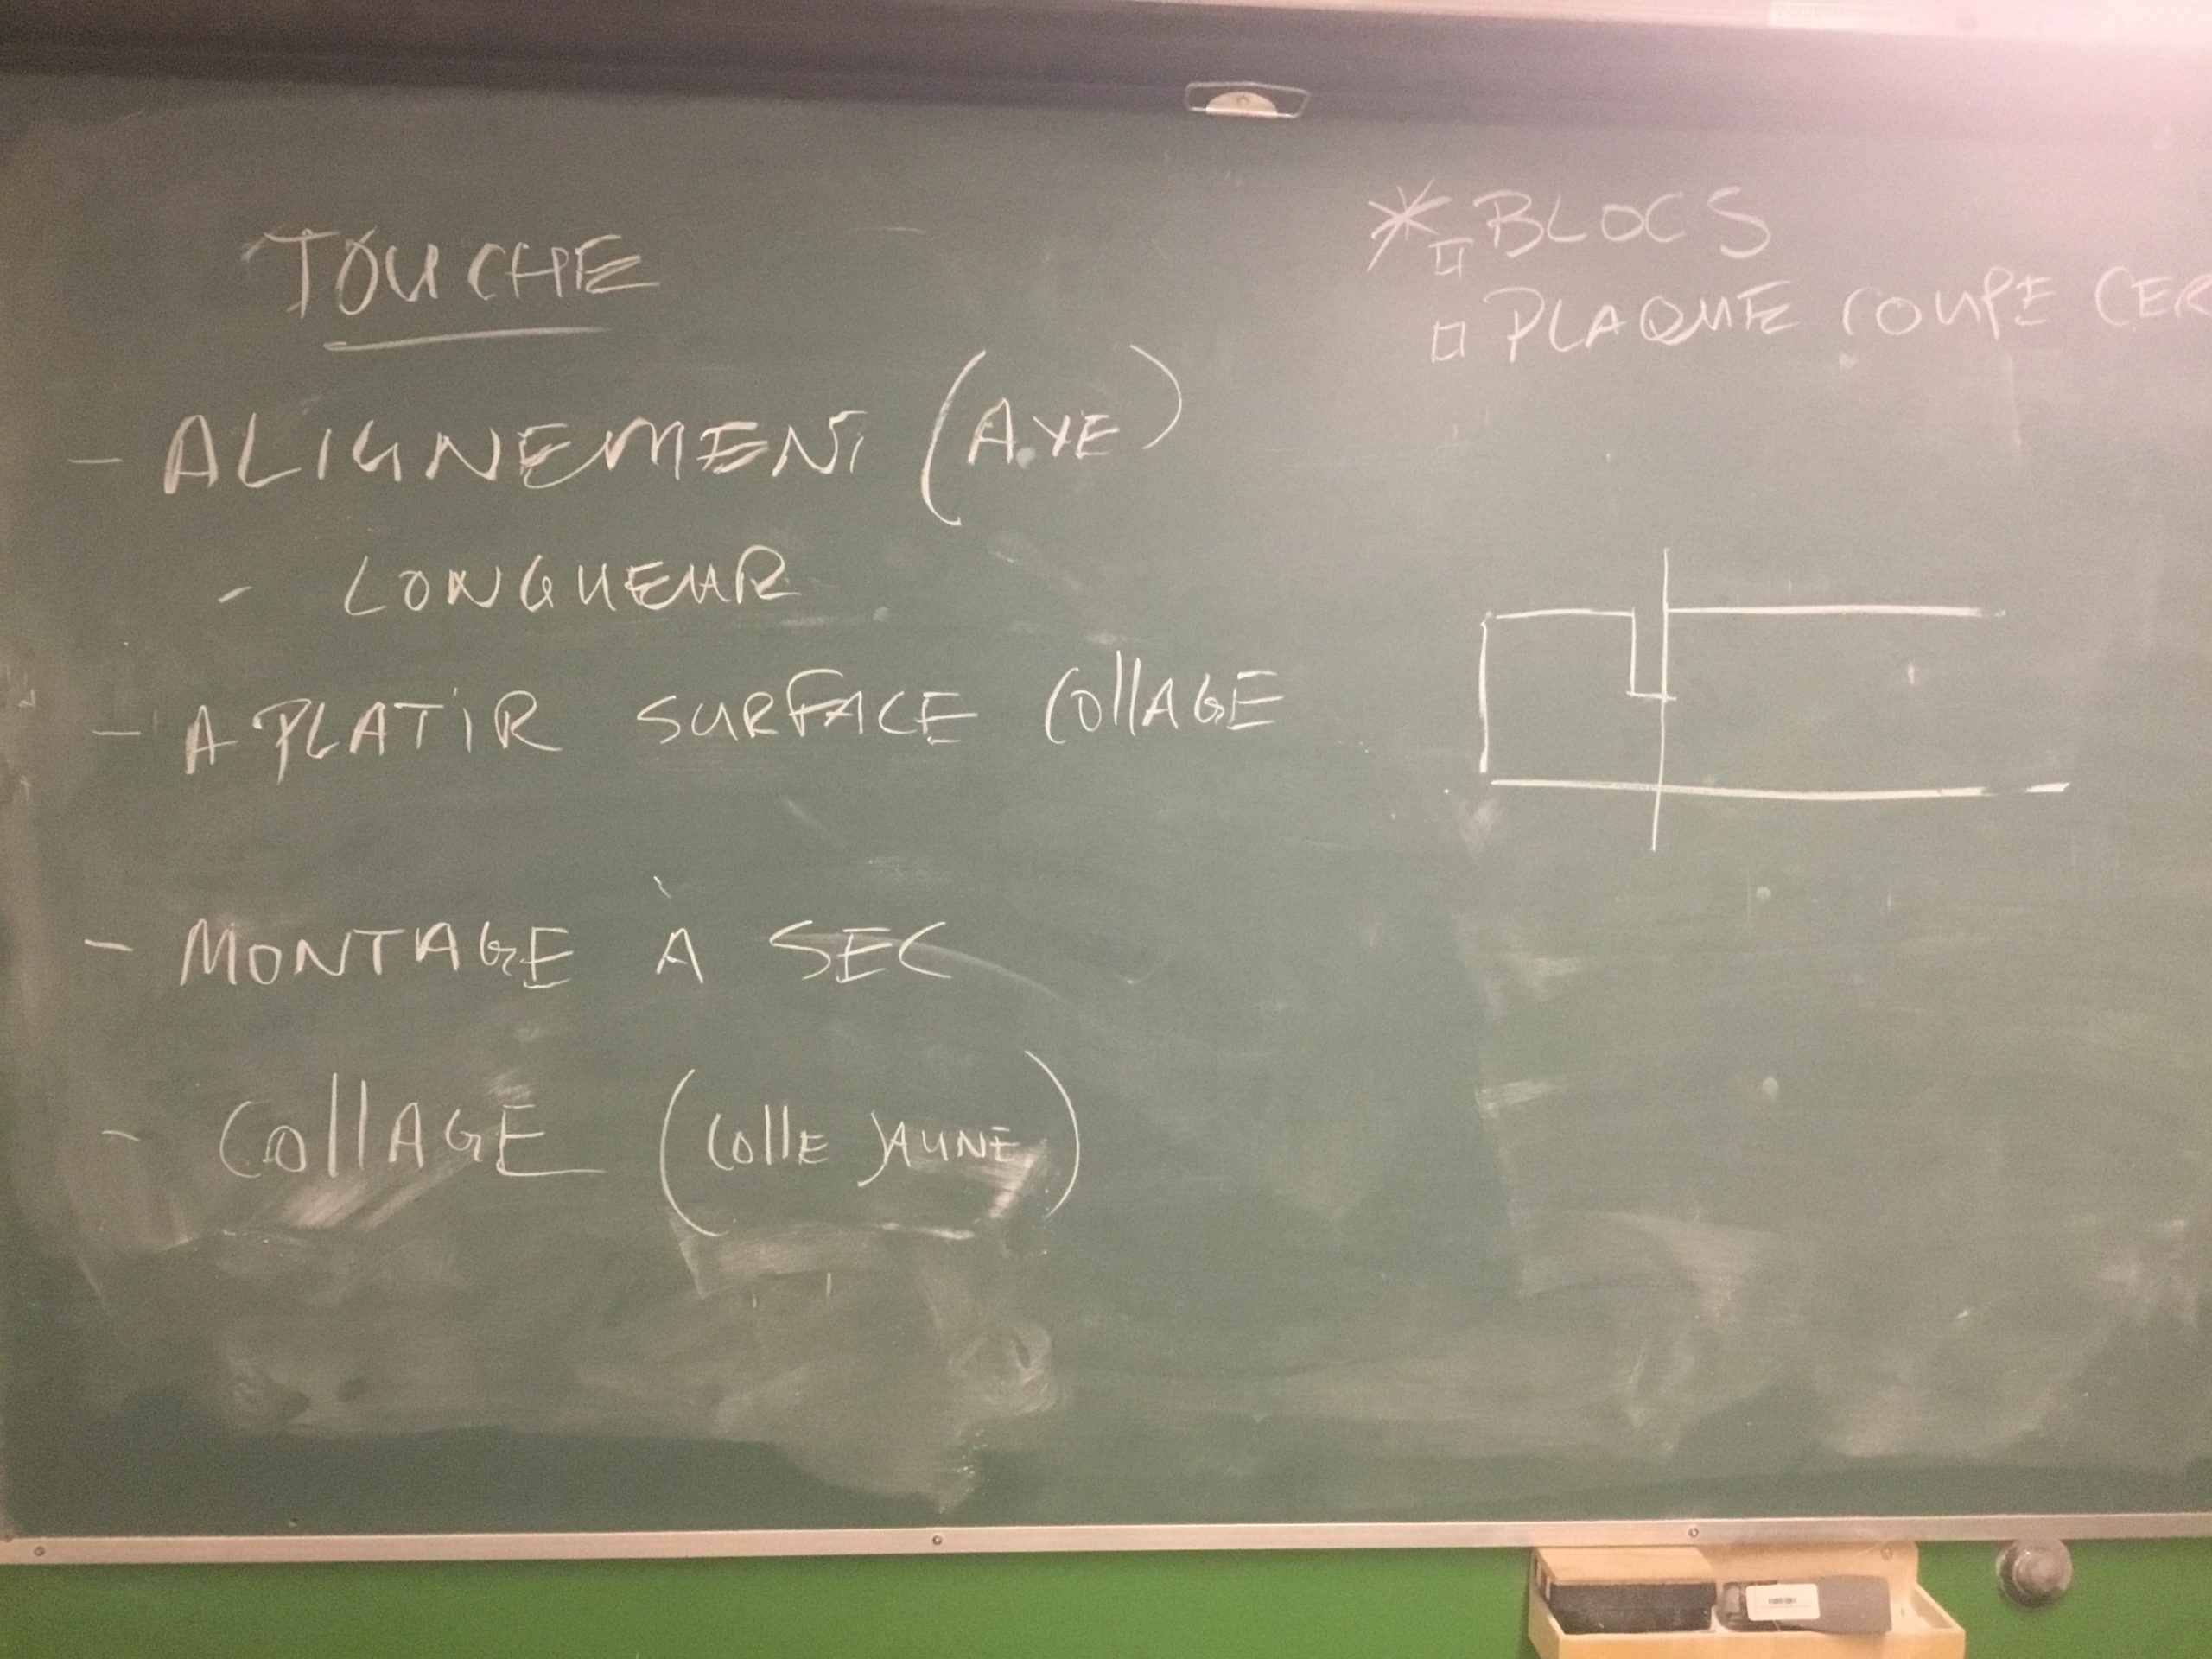 TOUCHE
- ALIGNEMENT (AXE)
- LONGUEUR
- APLATIR SURFACE COllAGE
- MONTAGE À SEC
- COllAGE (COllE JAUNE)
* □ BLOCS
□ PLAQUE COUPE CER